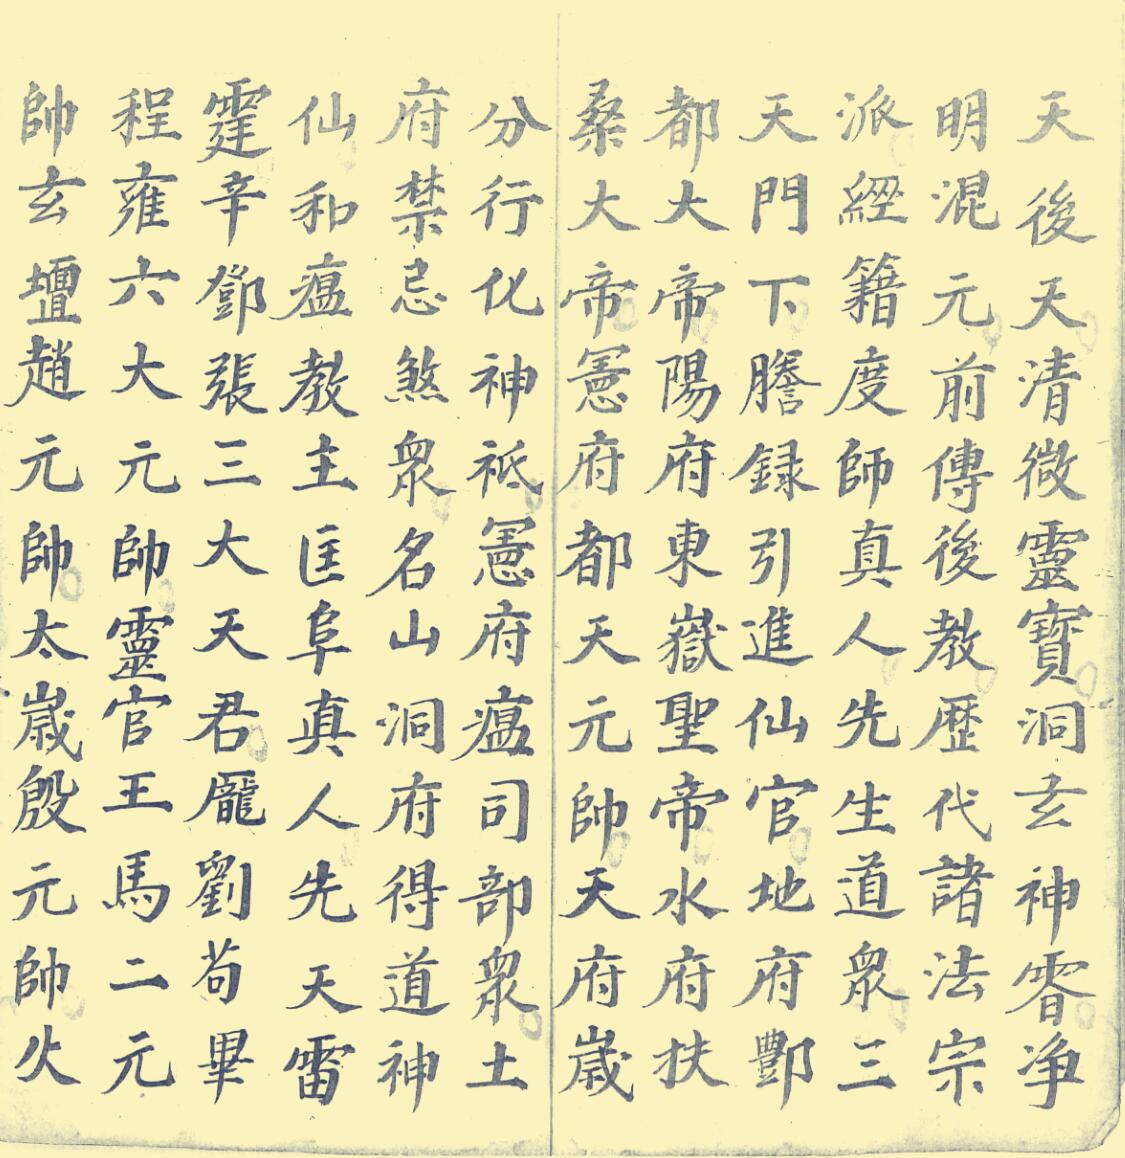 天後天清微靈寶洞玄神霄净
明混元前傳後教歷代諸法宗
派經籍度師真人先生道眾三
天門下謄録引進仙官地府酆
都大帝陽府東嶽聖帝水府扶
桑大帝憲府都天元帥天府歲
分行化神祇憲府瘟司部眾土
府禁忌煞眾名山洞府得道神
仙和瘟教主匡阜真人先天雷
霆辛鄧張三大天君龐劉苟畢
程雍六大元帥靈官王馬二元
帥玄壇趙元帥太歲殷元帥火